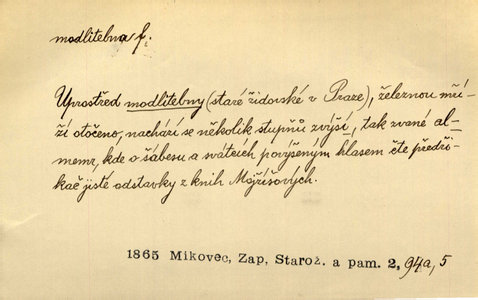 modlitebna f.
Uprostřed modlitebny (staré židovské v Praze), železnou mří
ží otočeno, nachází se několik stupňů zvýší, tak zvané al_
memr, kde o šábesu a svátcích povýšeným hlasem čte předři_
kač jisté odstavky z knih Mojžíšových.
1865 Mikovec, Zap, Starož. a pam. 2, 94a, 5